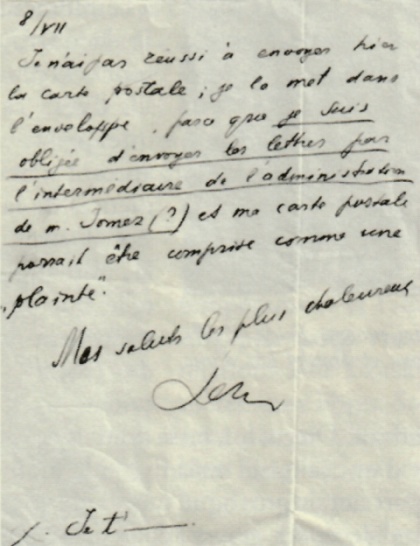 8/VII
Je n'ai pas réussi à envoyer hier
la carte postale ; je la met dans
l'enveloppe, parce que je suis
obligée d'envoyer les lettres par
l'intermédiaire de l'administration
de m. Jomez (?) et ma carte postale
porrait être comprise comme une
„plainte".
Mes saluts les plus chaleureux